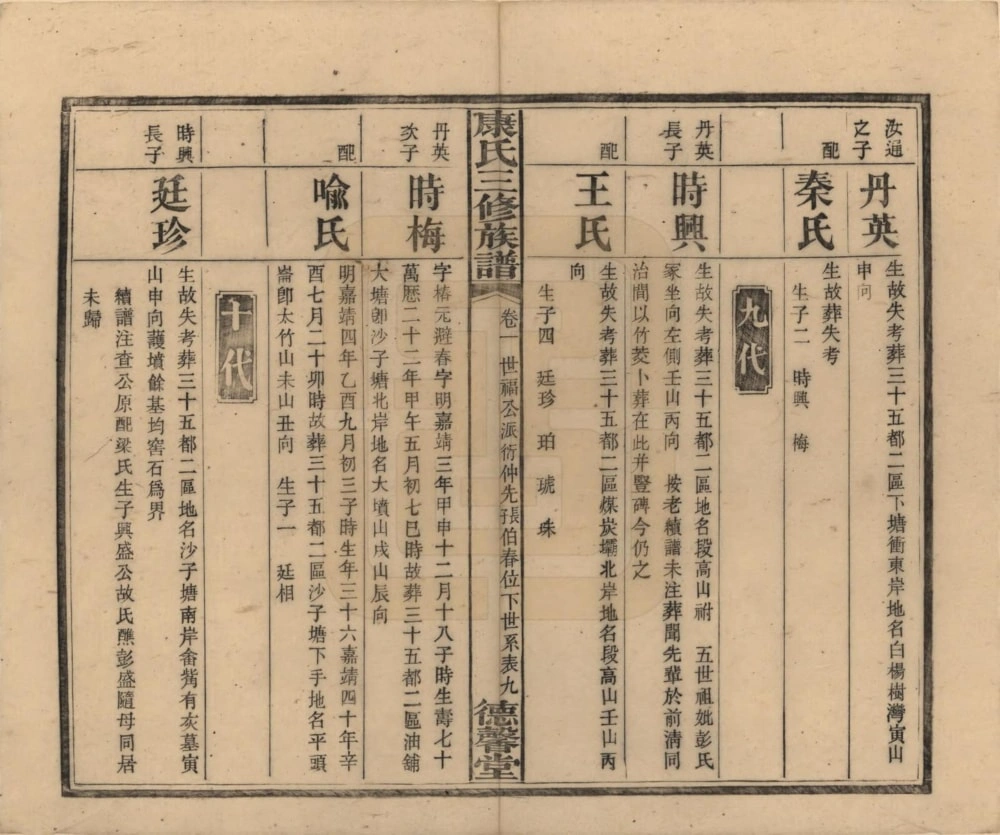 汝通之子
丹英
生故失考葬三十五都二區下塘衝東岸地名白楊樹灣寅山
申向
配
秦氏
生故葬失考
生子二　時興　梅
九代
丹英長子
時興
生故失考葬三十五都二區地名段高山祔　五世祖妣彭氏
冢坐向左側壬山丙向　按老續譜未注葬聞先輩於前淸同
治間以竹茭卜葬在此幷豎碑今仍之
配
王氏
生故失考葬三十五都二區煤炭壩北岸地名段高山壬山丙
向
生子四　廷珍　珀　琥　珠
康氏三修族譜
卷一　世福公派衍仲先孫伯春位下世系表九
德馨堂
丹英次子
時梅
字椿元避春字明嘉靖三年甲申十二月十八子時生壽七十
萬厯二十二年甲午五月初七巳時故葬三十五都二區油鋪
大塘卽沙子塘北岸地名大墳山戌山辰向
配
喩氏
明嘉靖四年乙酉九月初三子時生年三十六嘉靖四十年辛
酉七月二十卯時故葬三十五都二區沙子塘下手地名平頭
崙卽太竹山未山丑向　生子一　廷相
十代
時興長子
廷珍
生故失考葬三十五都二區地名沙子塘南岸畬觜有灰墓寅
山申向護墳餘基均窖石爲界
續譜注查公原配梁氏生子興盛公故氏醮彭盛隨母同居
未歸